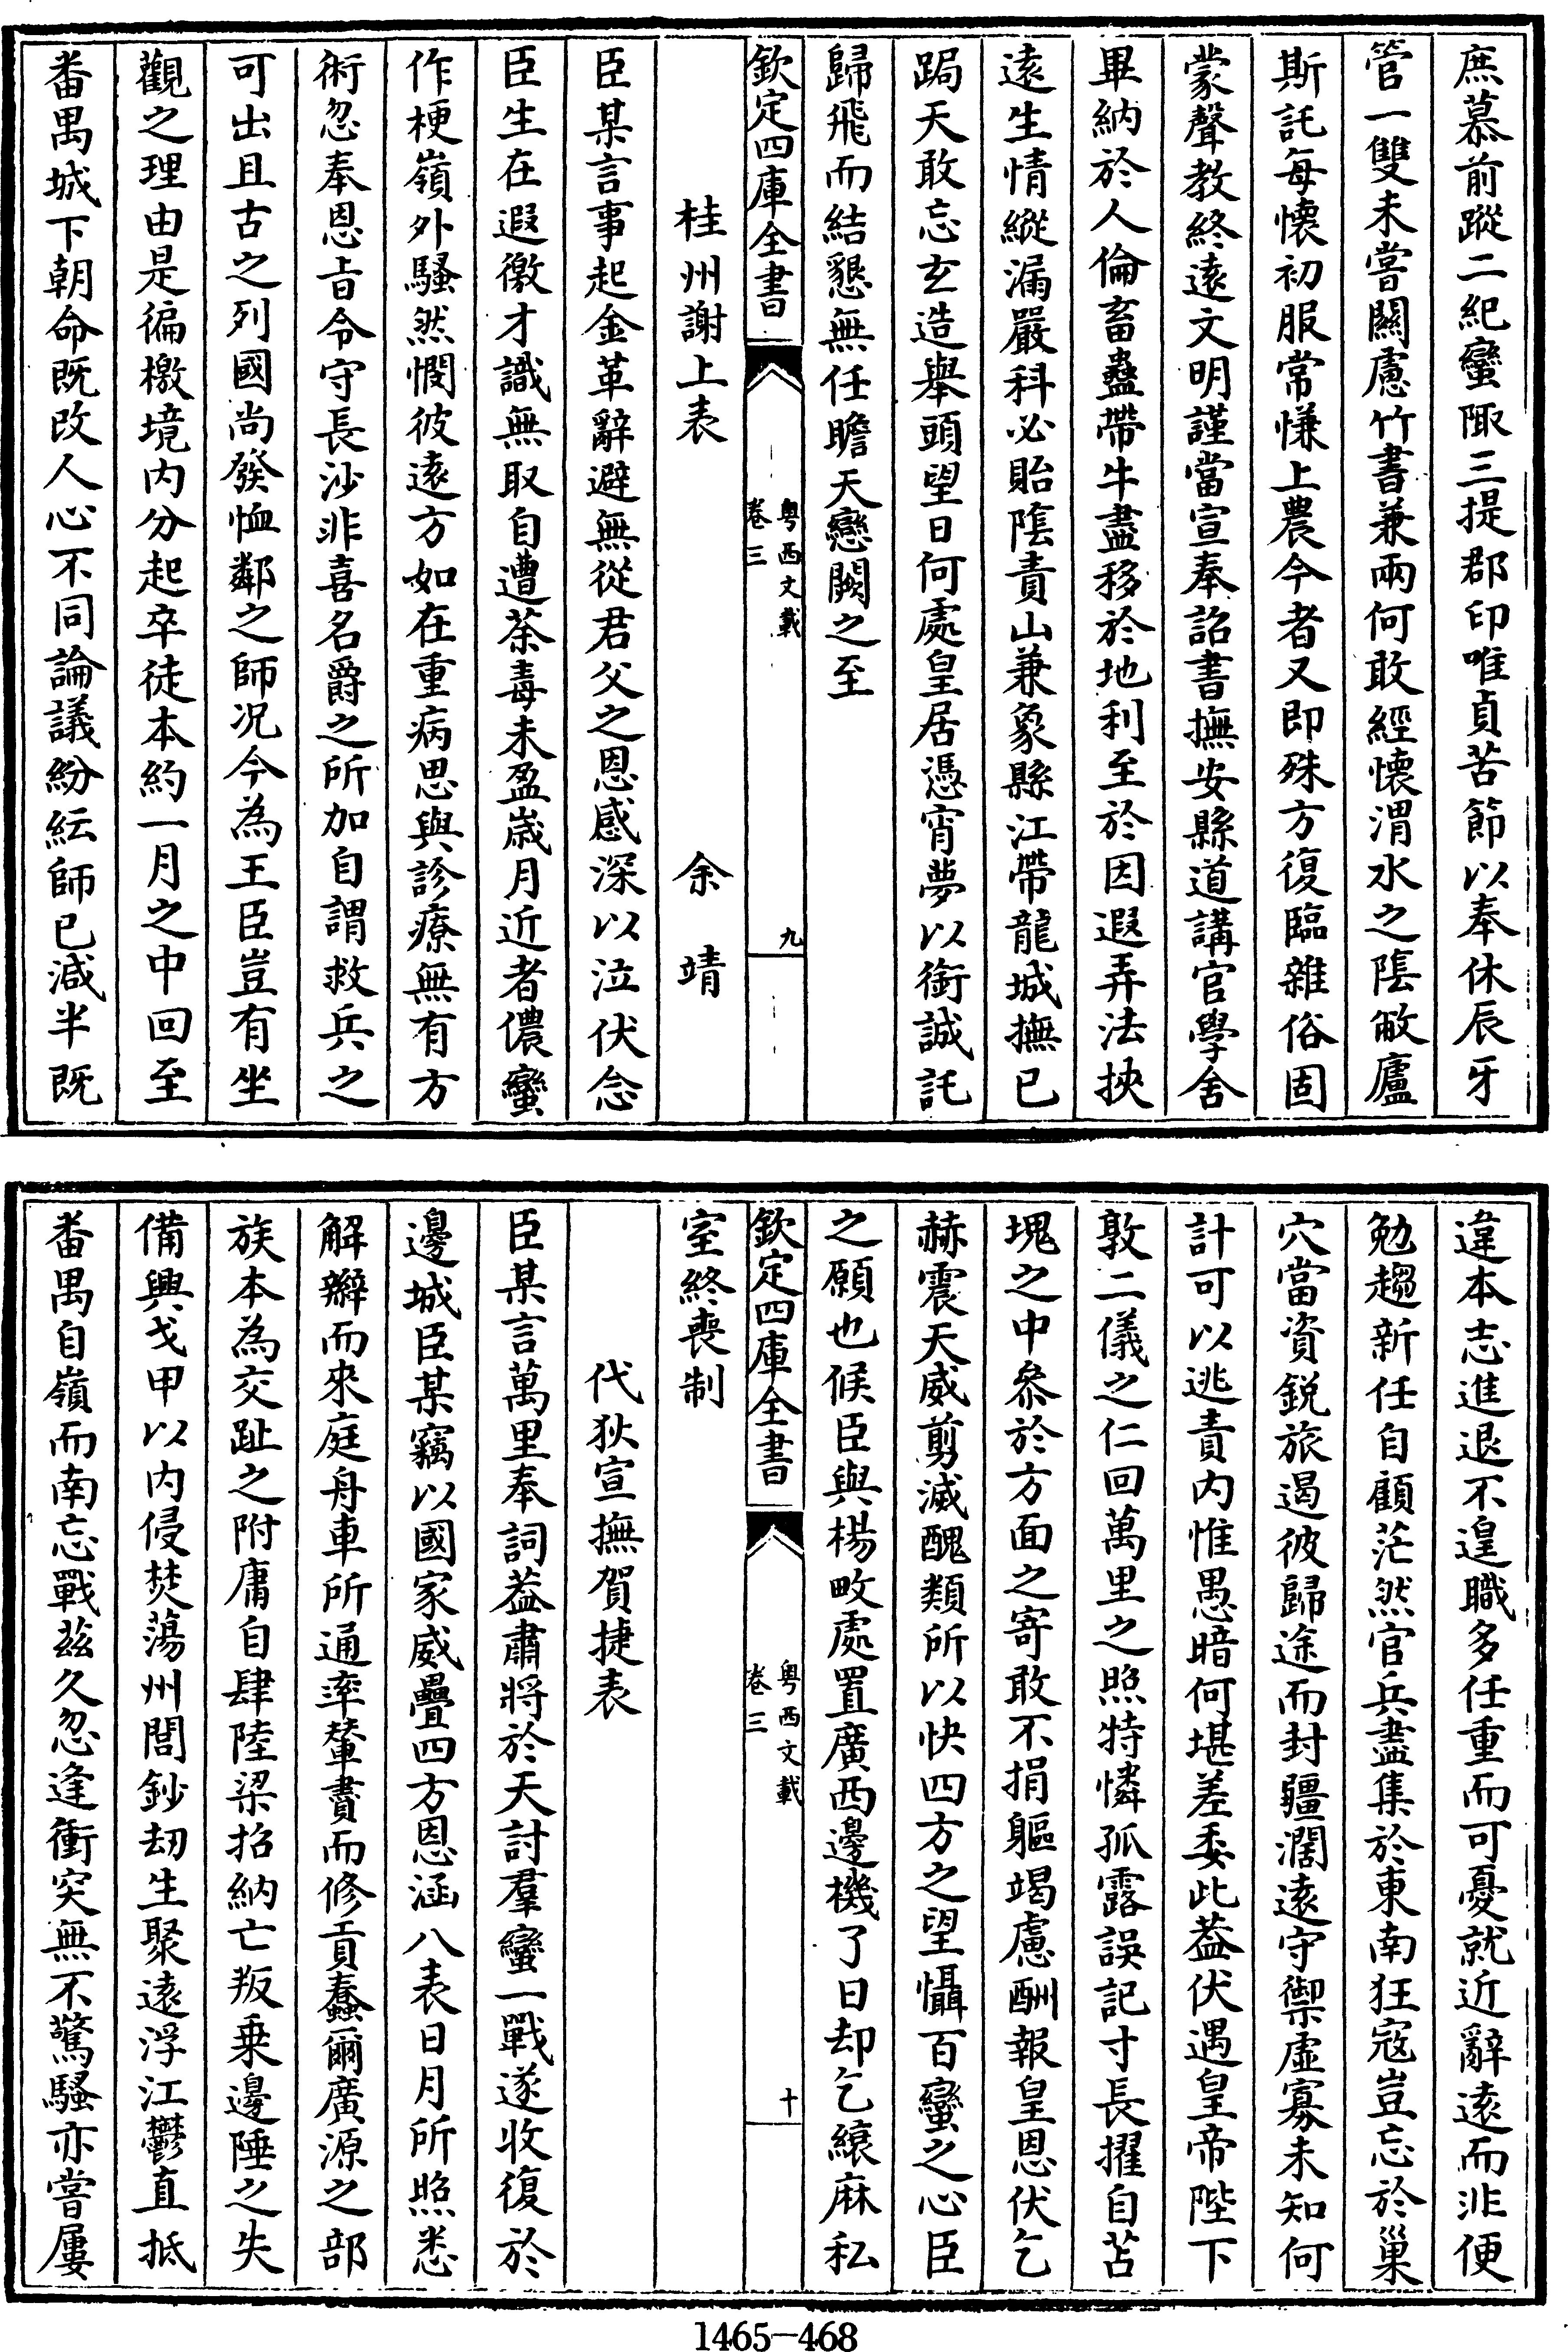 庶慕前蹤二紀蠻陬三提郡印唯貞苦節以奉休辰牙
管一雙未嘗關慮竹書兼兩何敢經懷渭水之隂敝廬
斯託每懷初服常慊上農今者又即殊方復臨雜俗固
蒙聲教終遠文明謹當宣奉詔書撫安縣道講官學舍
畢納於人倫畜蠱帶牛盡移於地利至於因遐弄法挾
遠生情縱漏嚴科必貽隂責山兼象縣江帶龍城撫已
跼天敢忘玄造舉頭望日何處皇居憑宵夢以銜誠託
歸飛而結懇無任瞻天戀闕之至
欽定四庫全書
粤西文載
卷三
九
桂州謝上表
余靖
臣某言事起金革辭避無從君父之恩感深以泣伏念
臣生在遐徼才識無取自遭荼毒未盈歳月近者儂蠻
作梗嶺外騷然憫彼遠方如在重病思與診療無有方
術忽奉恩㫖令守長沙非喜名爵之所加自謂救兵之
可出且古之列國尚發恤鄰之師况今為王臣豈有坐
觀之理由是徧檄境内分起卒徒本約一月之中回至
番禺城下朝命既改人心不同論議紛紜師已減半既
違本志進退不遑職多任重而可憂就近辭遠而非便
勉趨新任自顧茫然官兵盡集於東南狂寇豈忘於巢
穴當資鋭旅遏彼歸途而封疆濶遠守禦虛寡未知何
計可以逃責内惟愚暗何堪差委此葢伏遇皇帝陛下
敦二儀之仁回萬里之照特憐孤露誤記寸長擢自苫
塊之中叅於方面之寄敢不捐軀竭慮酬報皇恩伏乞
赫震天威剪滅醜類所以快四方之望懾百蠻之心臣
之願也候臣與楊畋處置廣西邊機了日却乞縗麻私
欽定四庫全書
粤西文載
卷三
十
室終喪制
代狄宣撫賀捷表
臣某言萬里奉詞葢肅將於天討羣蠻一戰遂收復於
邊城臣某竊以國家威疊四方恩涵八表日月所照悉
解辮而來庭舟車所通率輦賮而修貢蠢爾廣源之部
族本為交趾之附庸自肆陸梁招納亡叛乗邊陲之失
備興戈甲以内侵焚蕩州閭鈔刼生聚逺浮江鬱直抵
番禺自嶺而南忘戰兹久忽逢衝突無不驚騷亦嘗屢
1465-468